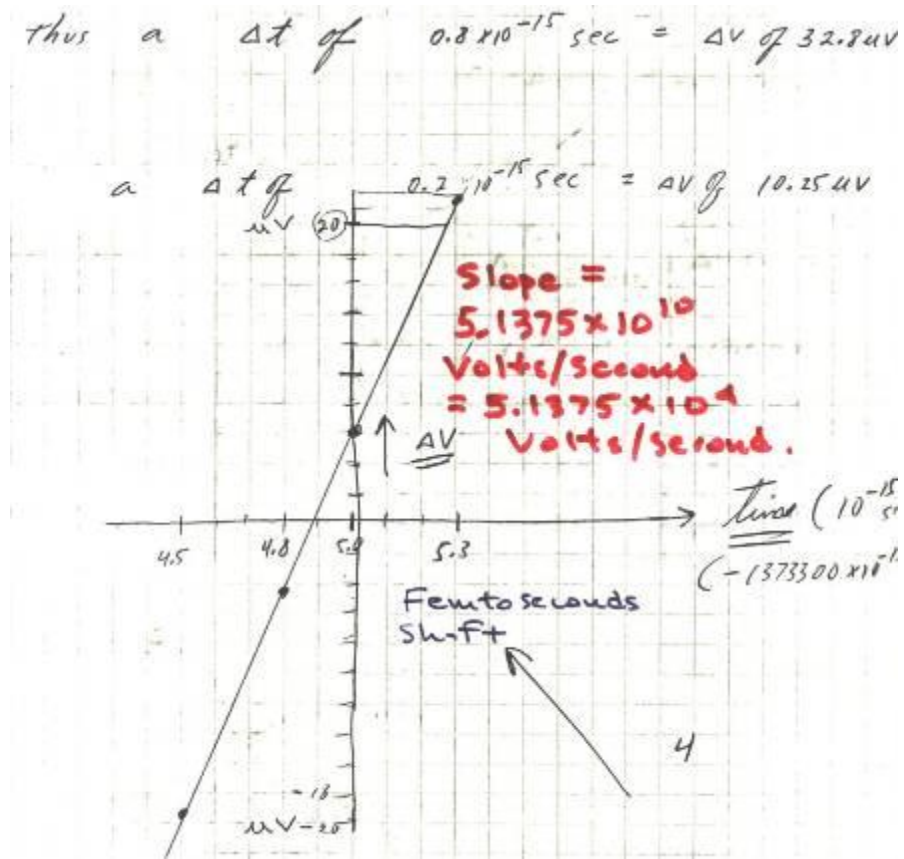 thus a Δt of 0.8x10⁻¹⁵ sec = ΔV of 32.8uV
a Δt of 0.2 10⁻¹⁵ sec = ΔV of 10.25uV
uV 20
Slope =
5.1375x10¹⁰
Volts/Second
= 5.1375x10⁴
Volts/Second.
ΔV
Time (10⁻¹⁵
4.5 4.8 5.0 5.3
(-1373300x10⁻¹
Femtoseconds
Shift
4
-18
uV-20